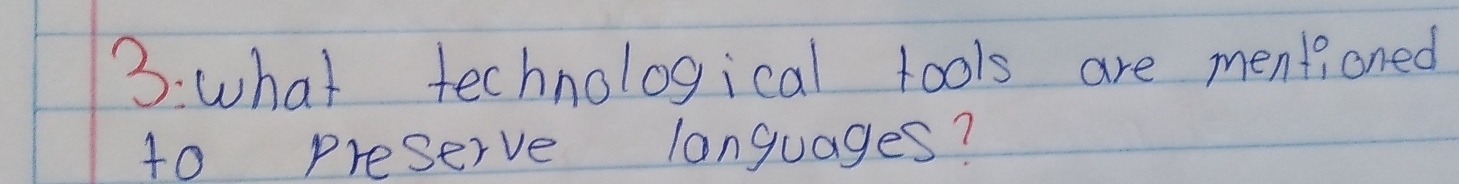 3:what technological tools are mentioned
to preserve languages?